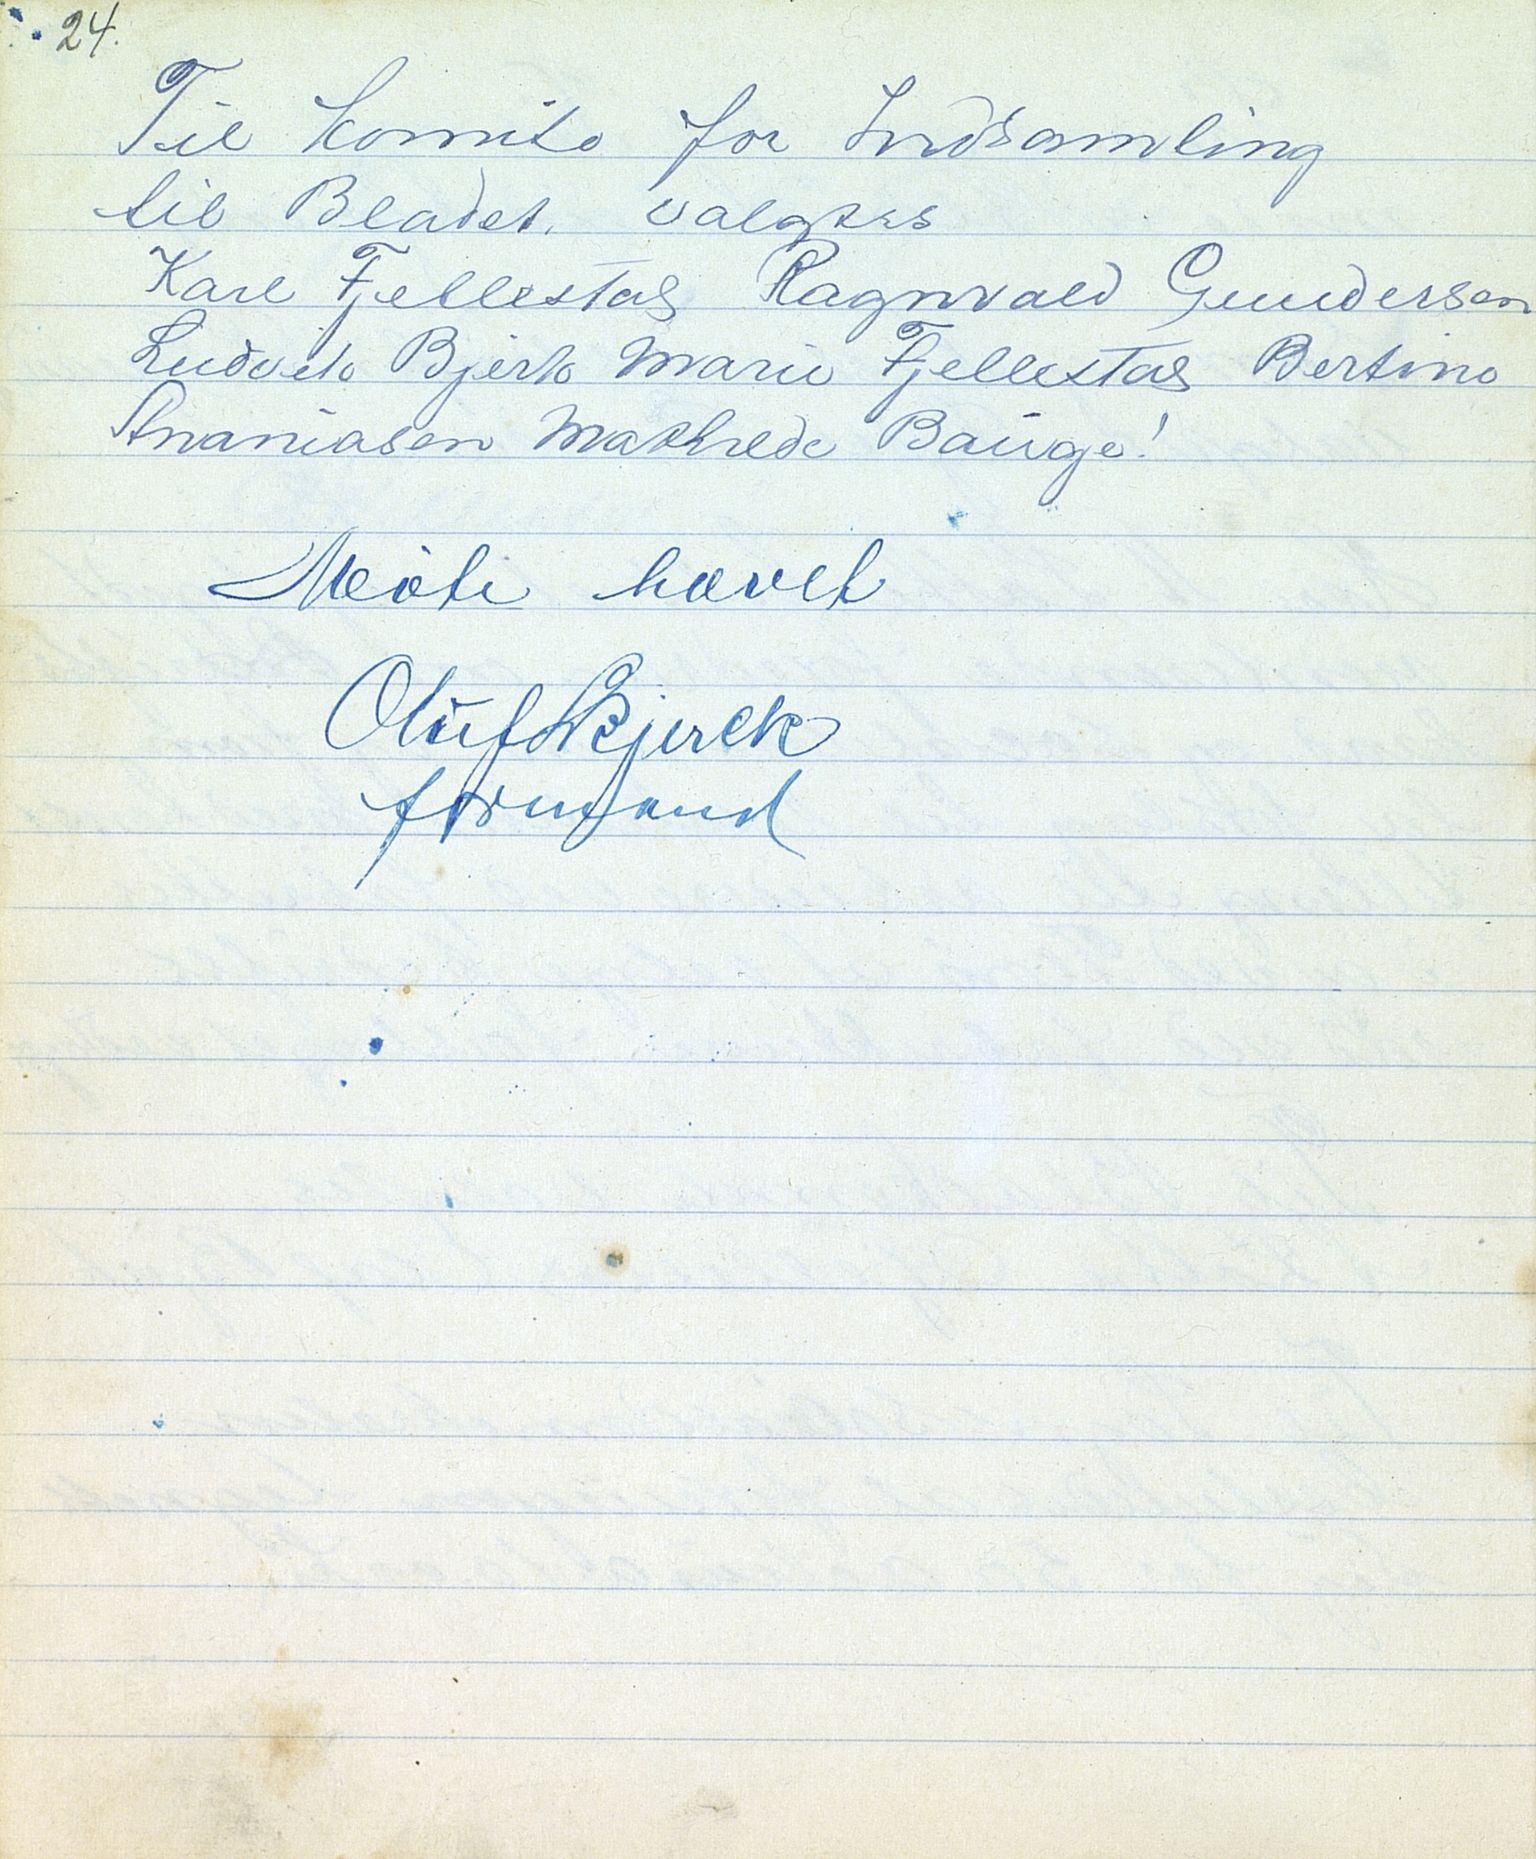 24.
Til Komite for Indsamling
til Bladet. valgtes
Karl Fjellestad Ragnvald Gundersen
Ludvik Bjerk Marie Fjellestad Bertine
Ananiasen Mathilde Bauge!
Møte hævet
Oluf Bjerck
formand